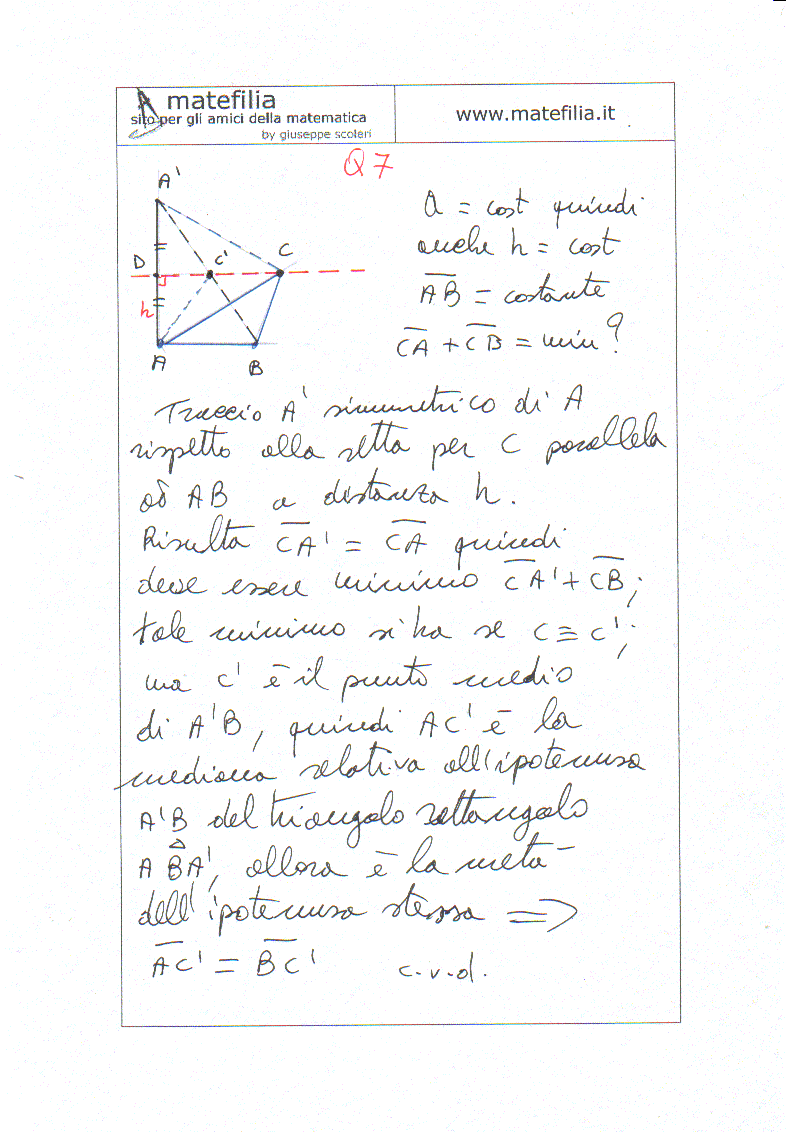 matefilia
sito per gli amici della matematica
by giuseppe scoleri
www.matefilia.it
Q7
A'
D
C'
C
h
A
B
a = cost quindi
anche h = cost
AB = costante
CA + CB = min?
Traccio A' simmetrico di A
rispetto alla retta per C parallela
ad AB a distanza h.
Risulta CA' = CA quindi
deve essere minimo CA' + CB;
tale minimo si ha se C ≡ C';
ma C' è il punto medio
di A'B, quindi AC' è la
mediana relativa all'ipotenusa
A'B del triangolo rettangolo
ABA', allora è la metà
dell'ipotenusa stessa ⇒
AC' = BC' c.v.d.